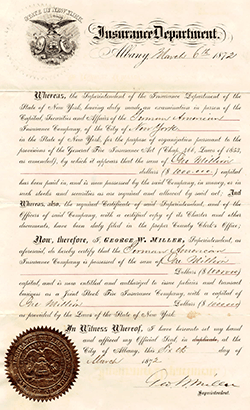 STATE OF NEW YORK.
Insurance Department.
Albany March 6th 1872
Whereas, the Superintendent of the Insurance Department of the
State of New York, having duly made an examination in person of the
Capital, Securities and Affairs of the German American
Insurance Company, of the City of New York
in the State of New York, for the purpose of organization pursuant to the
provisions of the General Fire Insurance Act (Chap. 466, Laws of 1853,
as amended), by which it appears that the sum of One Million
dollars ($1000000) capital
has been paid in, and is now possessed by the said Company, in money, or in
such stocks and securities as are required and allowed by said act. And
Whereas, also, the required Certificate of said Superintendent, and of the
Officers of said Company, with a certified copy of its Charter and other
documents, have been duly filed in the proper County Clerk's Office;
Now, therefore, I, GEORGE W. MILLER, Superintendent, as
aforesaid do hereby certify that the German American
Insurance Company is possessed of the sum of One Million
Dollars ($1000000)
capital, and is now entitled and authorized to issue policies and transact
business as a Joint Stock Fire Insurance Company, with a capital of
One Million Dollars ($1000000)
as provided by the Laws of the State of New York.
In Witness Whereof, I have hereunto set my hand
and affixed my Official Seal, in duplicate, at the
City of Albany, this Sixth day of
March 1872
Geo W Miller
Superintendent.